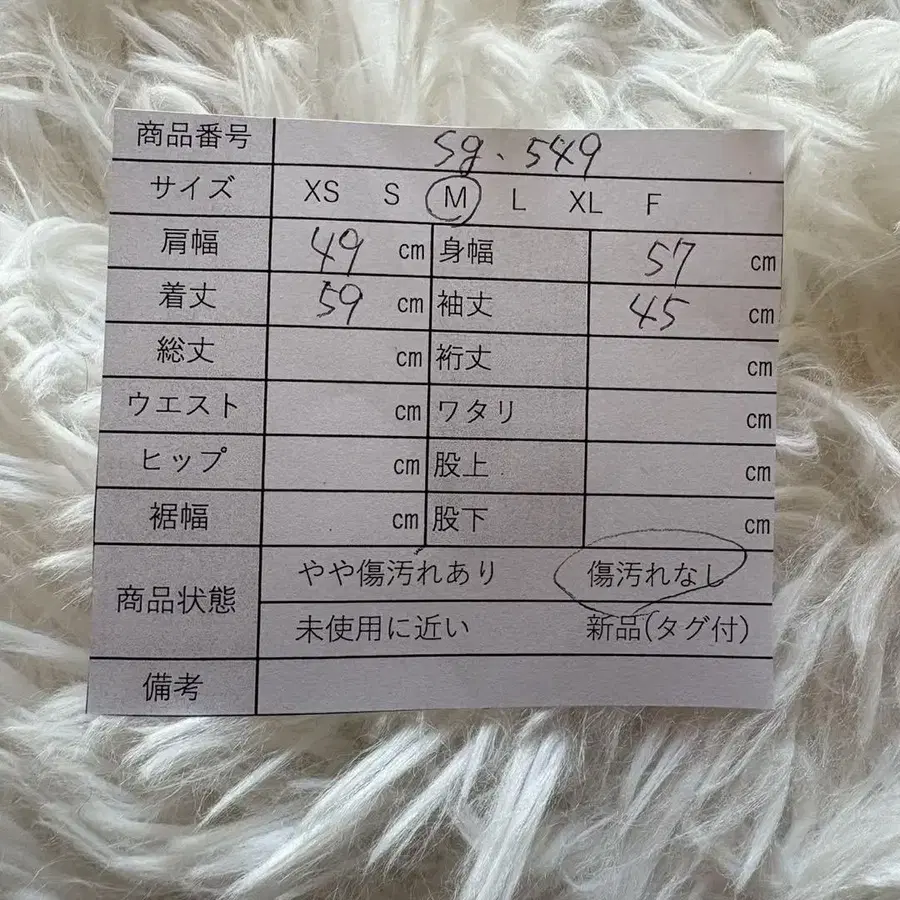 商品番号 Sg. 549
サイズ XS S M L XL F
肩幅 49 cm 身幅 57 cm
着丈 59 cm 袖丈 45 cm
総丈 cm 裄丈 cm
ウエスト cm ワタリ cm
ヒップ cm 股上 cm
裾幅 cm 股下 cm
商品状態 やや傷汚れあり 傷汚れなし
未使用に近い 新品(タグ付)
備考